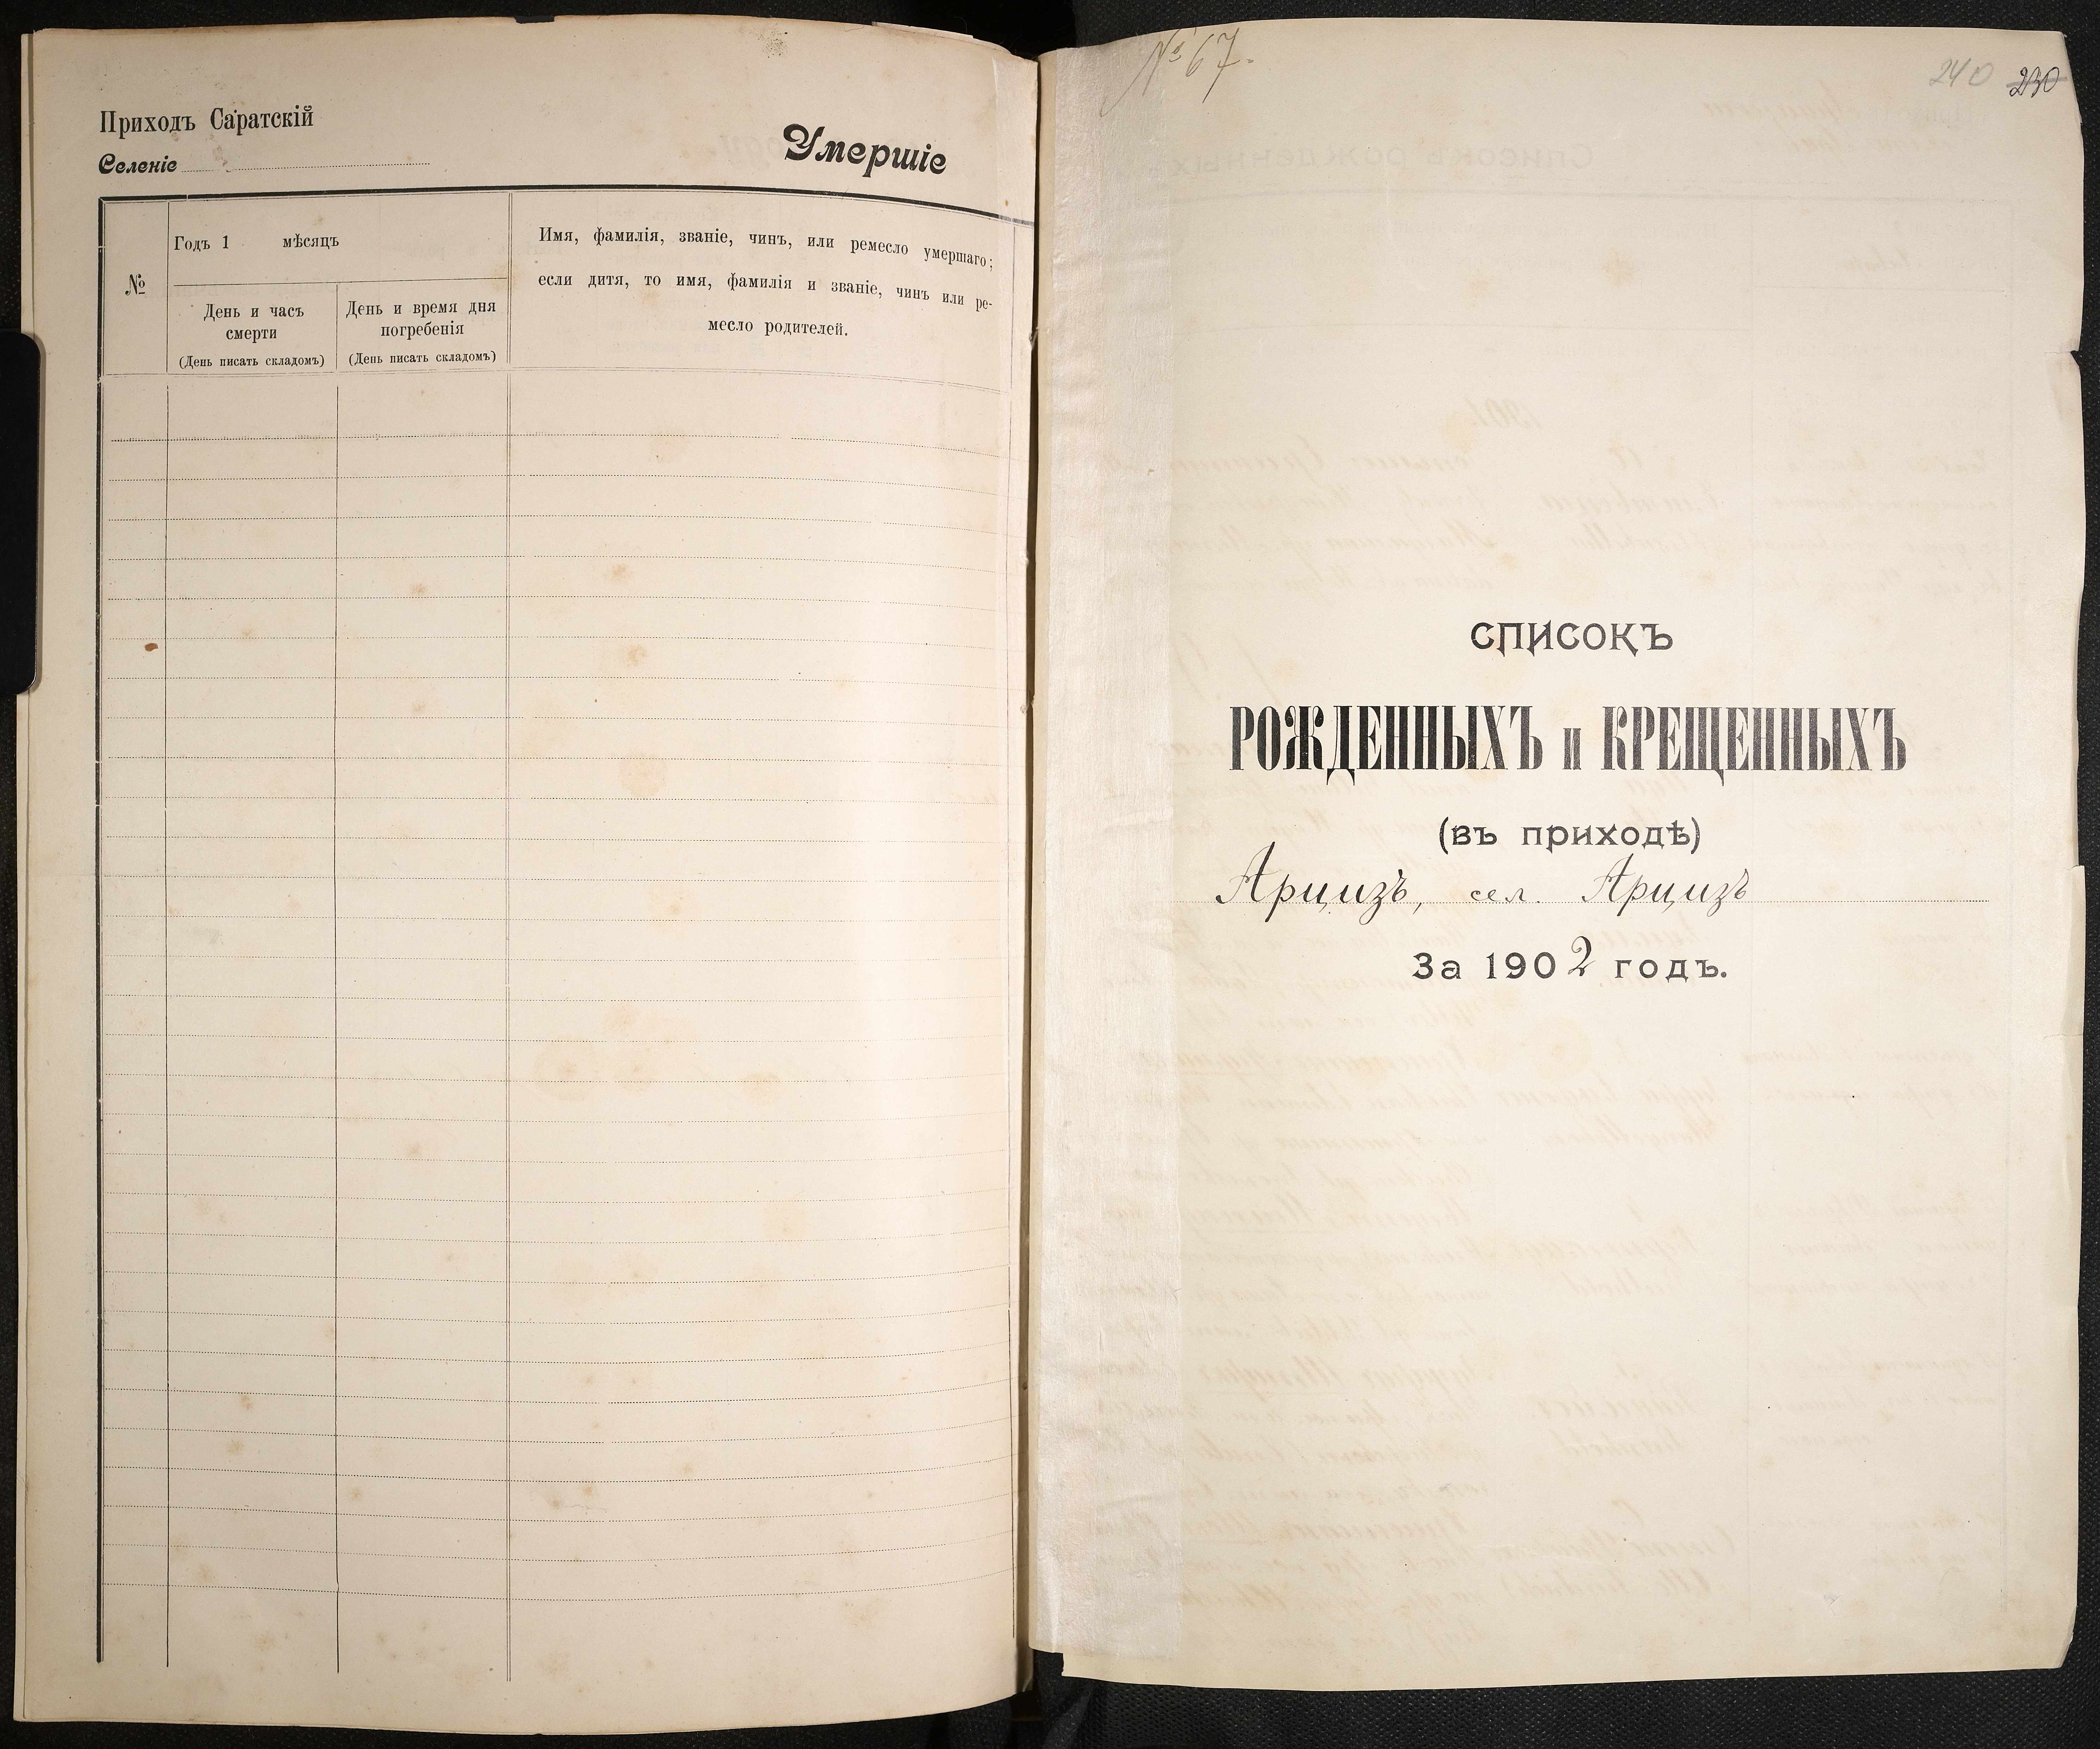 Приходъ Саратскій
Селеніе
Умершіе
№
Годъ 1 мѣсяцъ
День и часъ
смерти
(День писать складомъ)
День и время дня
погребенія
(День писать складомъ)
Имя, фамилія, званіе, чинъ, или ремесло умершаго;
если дитя, то имя, фамилія и званіе, чинъ или ре-
месло родителей.
№ 67.
240 230
СПИСОКЪ
РОЖДЕННЫХЪ и КРЕЩЕННЫХЪ
(въ приходѣ)
Арцизъ, сел. Арцизъ
За 1902 годъ.